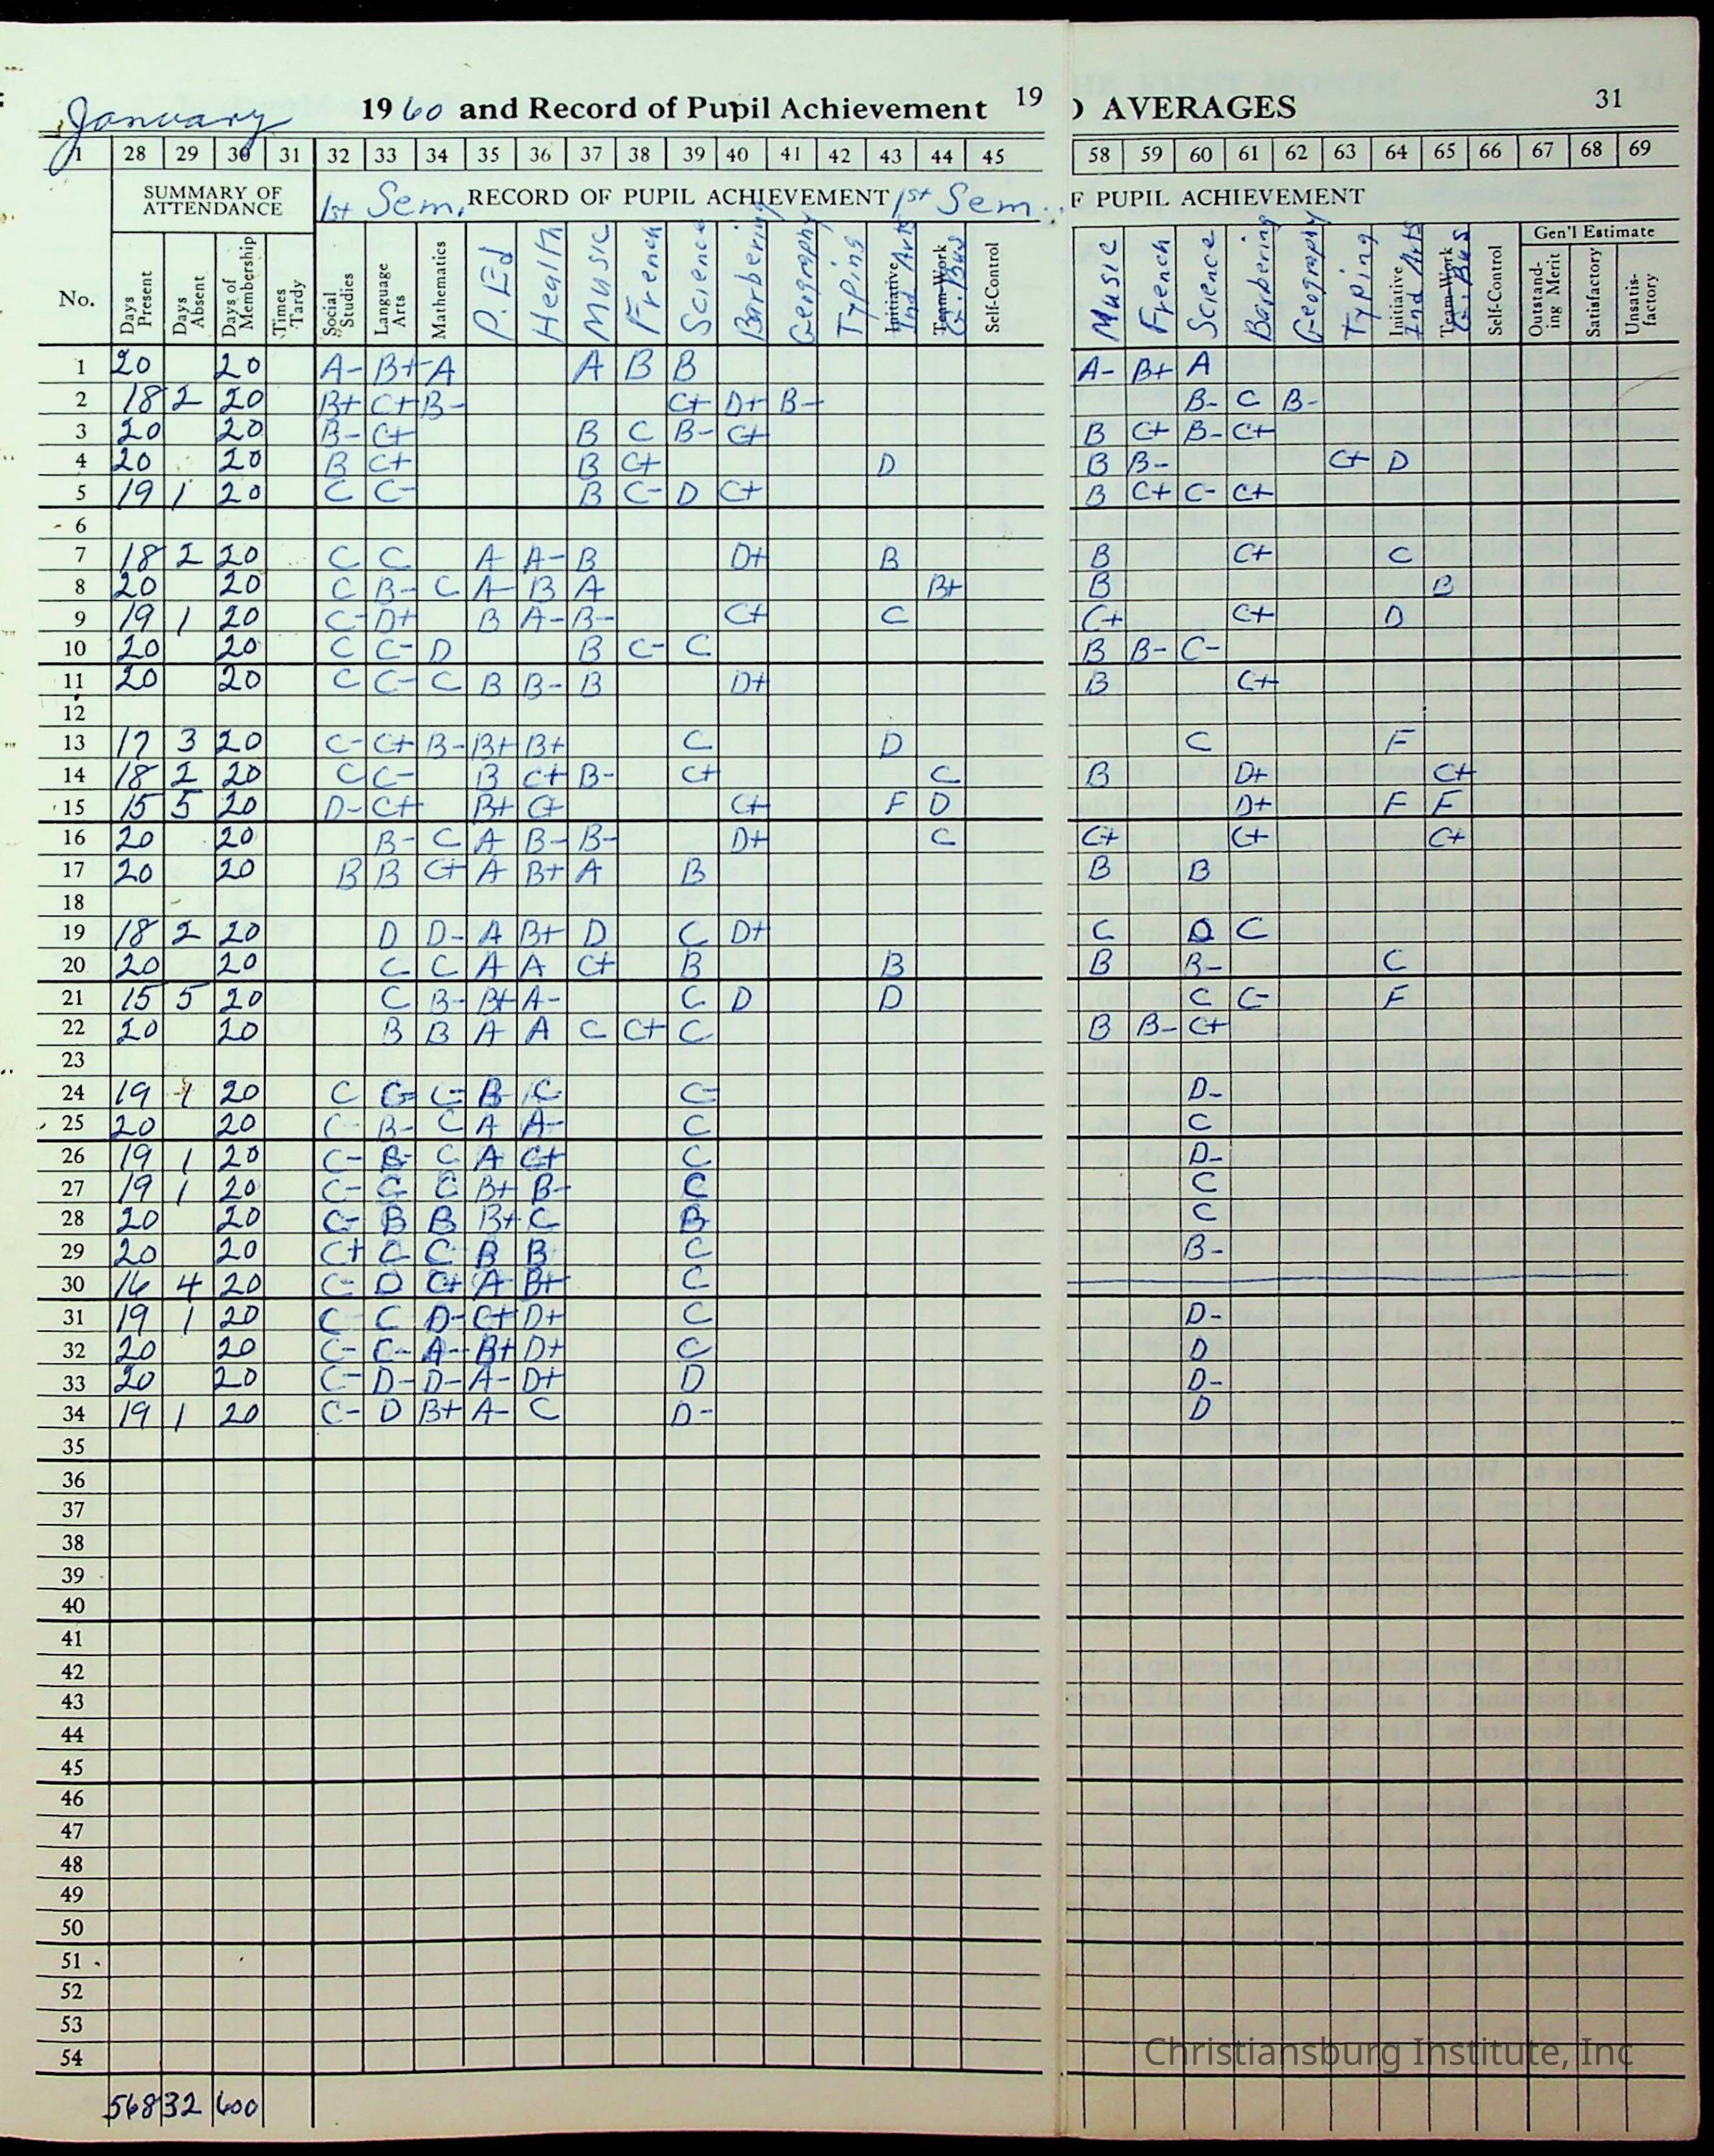 January 1960 and Record of Pupil Achievement 19
) AVERAGES 31
1 28 29 30 31 32 33 34 35 36 37 38 39 40 41 42 43 44 45
58 59 60 61 62 63 64 65 66 67 68 69
SUMMARY OF ATTENDANCE 1st Sem. RECORD OF PUPIL ACHIEVEMENT 1st Sem.
F PUPIL ACHIEVEMENT
Gen'l Estimate
No. Days Present Days Absent Days of Membership Times Tardy Social Studies Language Arts Mathematics P. Ed Health Music French Science Barbering Geography Typing Initiative Ind Arts Team-Work G. Bus Self-Control
Music French Science Barbering Geography Typing Initiative Ind Arts Team-Work G. Bus Self-Control Outstanding Merit Satisfactory Unsatisfactory
1 20 20 A- B+ A A B B A- B+ A
2 18 2 20 B+ C+ B- C+ D+ B- B- C B-
3 20 20 B- C+ B C B- C+ B C+ B- C+
4 20 20 B C+ B C+ D B B- C+ D
5 19 1 20 C C- B C- D C+ B C+ C- C+
6
7 18 2 20 C C A A- B D+ B B C+ C
8 20 20 C B- C A- B A B+ B B
9 19 1 20 C- D+ B A- B- C+ C C+ C+ D
10 20 20 C C- D B C- C B B- C-
11 20 20 C C- C B B- B D+ B C+
12
13 17 3 20 C- C+ B- B+ B+ C D C F
14 18 2 20 C C- B C+ B- C+ C B D+ C+
15 15 5 20 D- C+ B+ C+ C+ F D D+ F F
16 20 20 B- C A B- B- D+ C C+ C+ C+
17 20 20 B B C+ A B+ A B B B
18
19 18 2 20 D D- A B+ D C D+ C D C
20 20 20 C C A A C+ B B B B- C
21 15 5 20 C B- B+ A- C D D C C- F
22 20 20 B B A A C C+ C B B- C+
23
24 19 1 20 C C- C- B- C C- D-
25 20 20 C- B- C A A- C C
26 19 1 20 C- B- C A C+ C D-
27 19 1 20 C- C C B+ B- C C
28 20 20 C- B B B+ C B- C
29 20 20 C+ C C B B C B-
30 16 4 20 C- D C+ A- B+ C
31 19 1 20 C- C D- C+ D+ C D-
32 20 20 C- C- A- B+ D+ C D
33 20 20 C- D- D- A- D+ D D-
34 19 1 20 C- D B+ A- C D- D
35
36
37
38
39
40
41
42
43
44
45
46
47
48
49
50
51
52
53
54
568 32 600
Christiansburg Institute, Inc